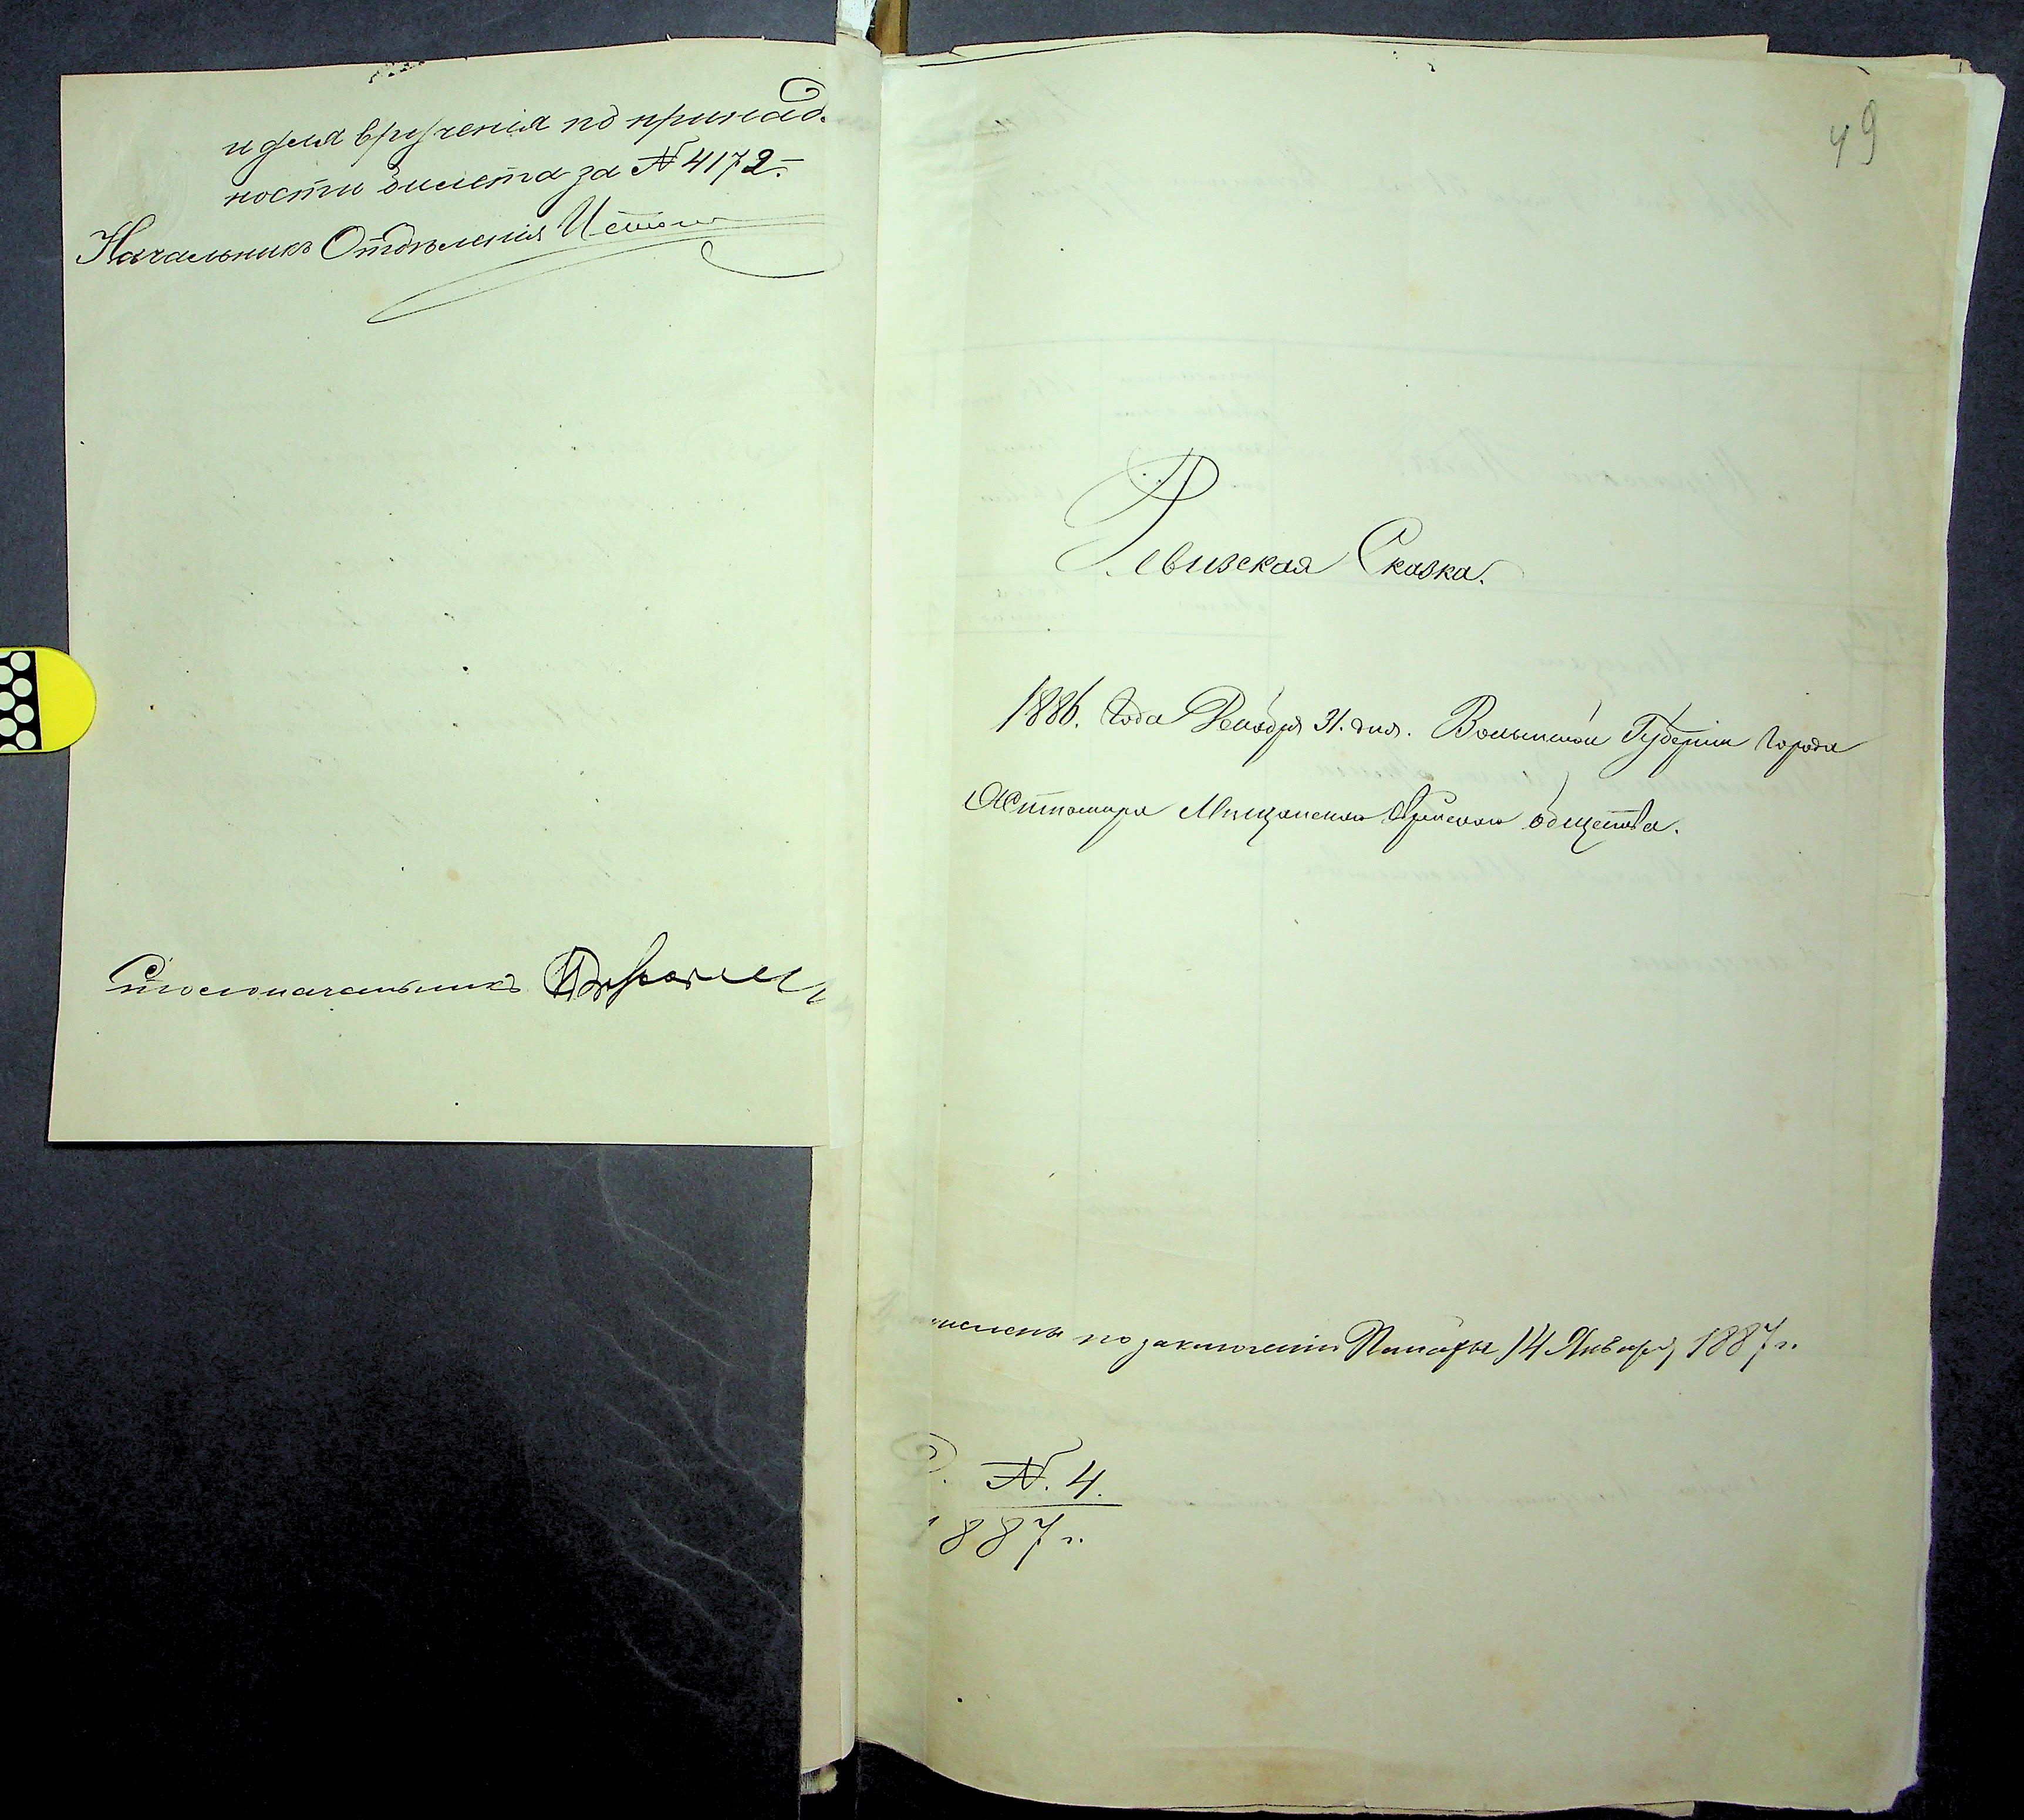 и для врученія по принад.
ности билета за № 4172.–
Начальникъ Отдѣленія
Столоначальникъ
49
Ревизская Сказка.
1886. Года Декабря 31. дня. Волынской Губерніи Города
Житомира Мѣщанскаго Еврейскаго общества.
числены по заключенію Палаты 14 Января 1887 г.
№. 4.
1887 г.